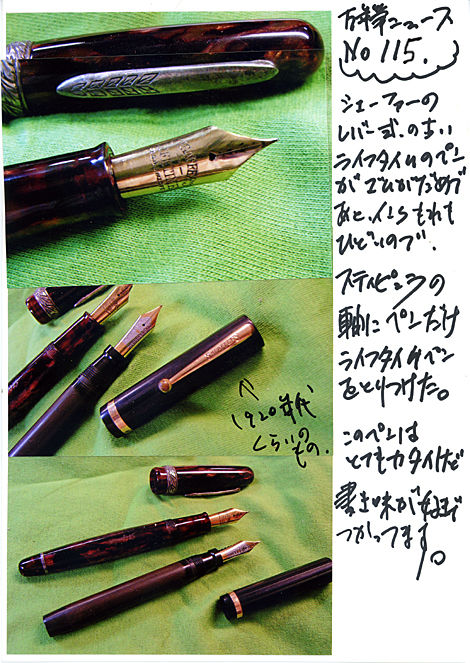 万年筆ニュース
No 115.
シェーファーの
レバー式の古い
ライフタイムのペン
がゴムがだめで
あと、インクもれも
ひどいので、
スティピュラの
軸にペンだけ
ライフタイムペン
をとりつけた。
このペンは
とてもカタイけど
書き味が好きで
つかってます。
1920年代
くらいの
もの.